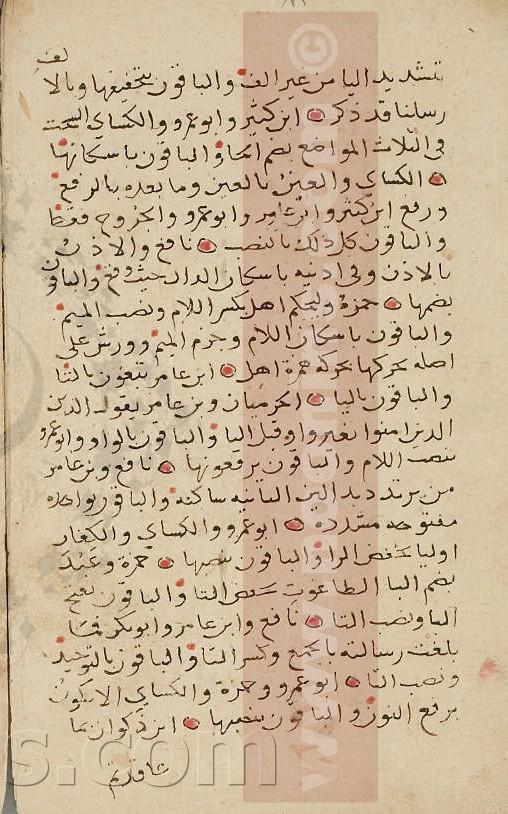 لف
بتشديد اليا من غير الف والباقون بتخفيفها وبالالف
رسلنا قد ذكر ابن كثير وابو عمرو والكساي السحت
في الثلاث المواضع بضم الحا والباقون باسكانها
الكساي والعين بالعين وما بعده بالرفع
ورفع ابن كثير وابن عامر وابو عمرو والجروح فقط
والباقون كل ذلك بالنصب نافع والاذن
بالاذن وفي اذنيه باسكان الذال حيث وقع والباقون
بضمها حمزة وليحكم اهل بكسر اللام ونصب الميم
والباقون باسكان اللام وجزم الميم وورش على
اصله يحركها بحركة همزة اهل ابن عامر تبغون بالتا
والباقون باليا الحرميان وبن عامر يقول الذين
الذين امنوا بغير واو قبل اليا والباقون بالواو وابو عمرو
بنصب اللام والباقون يرفعونها نافع وبن عامر
من يرتدد بدالين الثانيه ساكنه والباقون بواحده
مفتوحه مشدده ابو عمرو والكساي والكفار
اوليا بخفض الرا والباقون بنصبها حمزة وعبد
بضم البا الطاغوت بخفض التا والباقون بفتح
البا ونصب التا نافع وابن عامر وابو بكر فما
بلغت رسالته بالجمع وكسر التا والباقون بالتوحيد
ونصب التا ابو عمرو وحمزة والكساي الا تكون
برفع النون والباقون بنصبها ابن ذكوان بما
عاقدتم
s.com